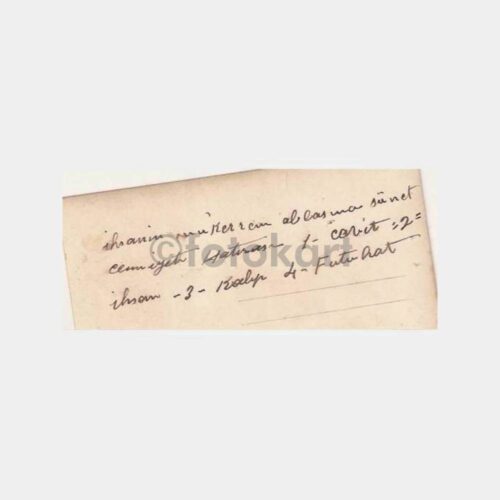 ihsanın mükerrem ablasına sünet
cemiyeti Hatırası 1- cavit =2=
ihsan -3- Kalp 4- Futuhat
©fotokart